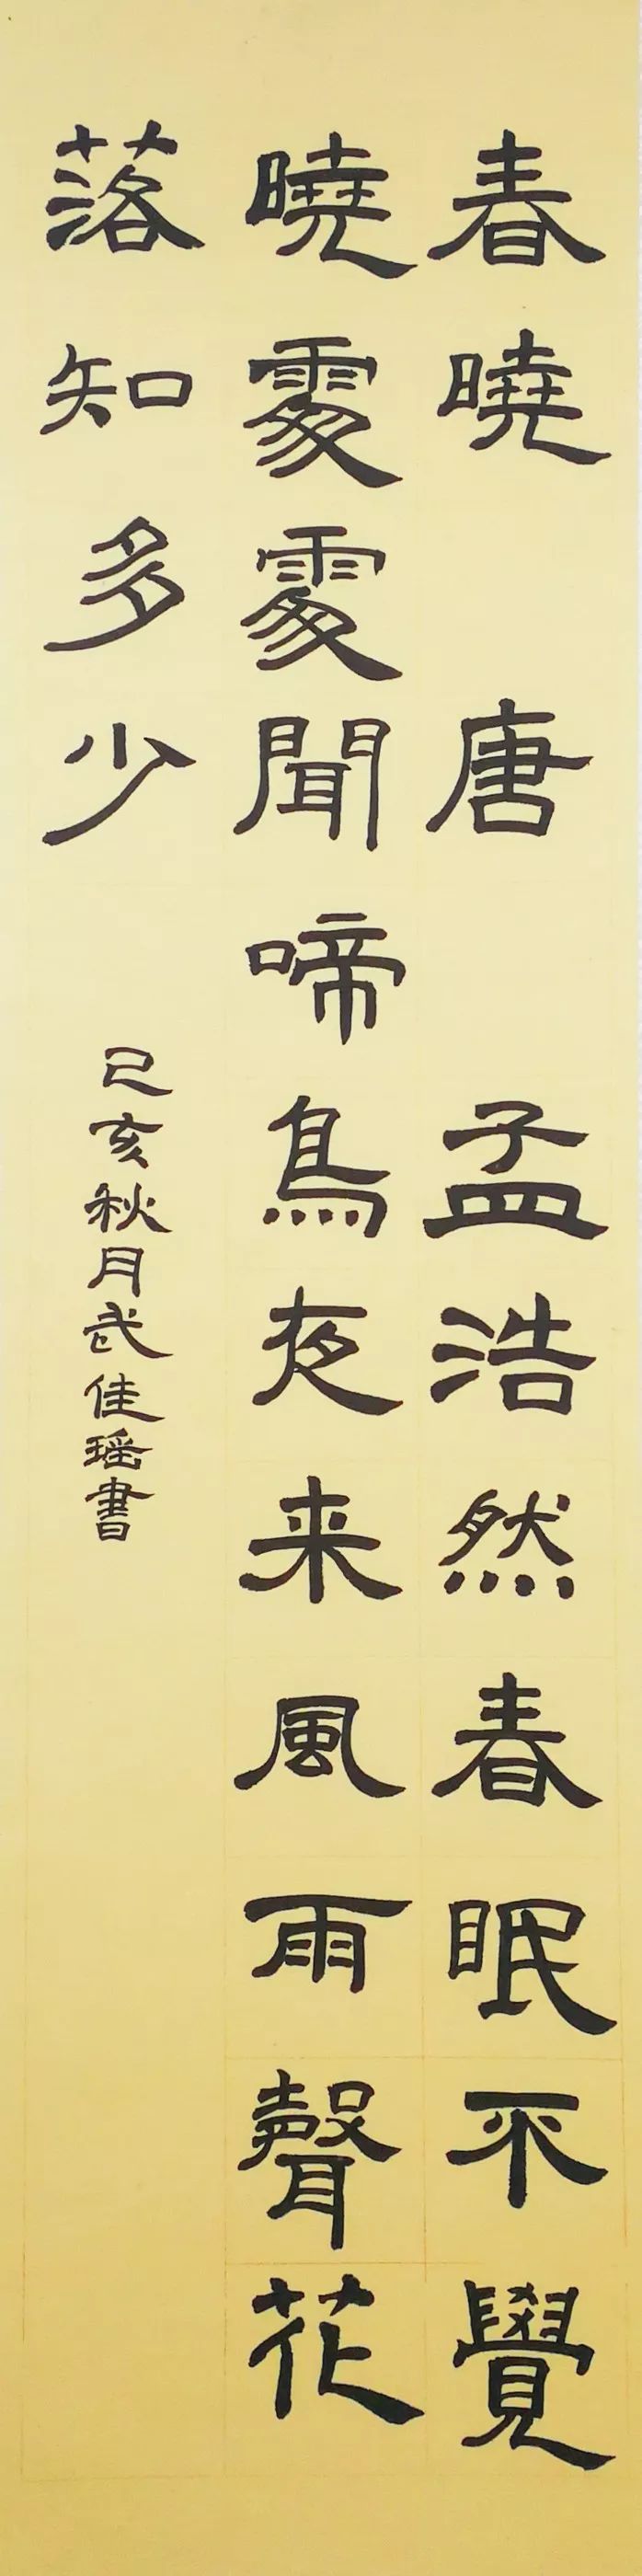 春曉 唐 孟浩然春眠不覺
曉處處聞啼鳥夜来風雨聲花
落知多少
己亥秋月武佳瑶書